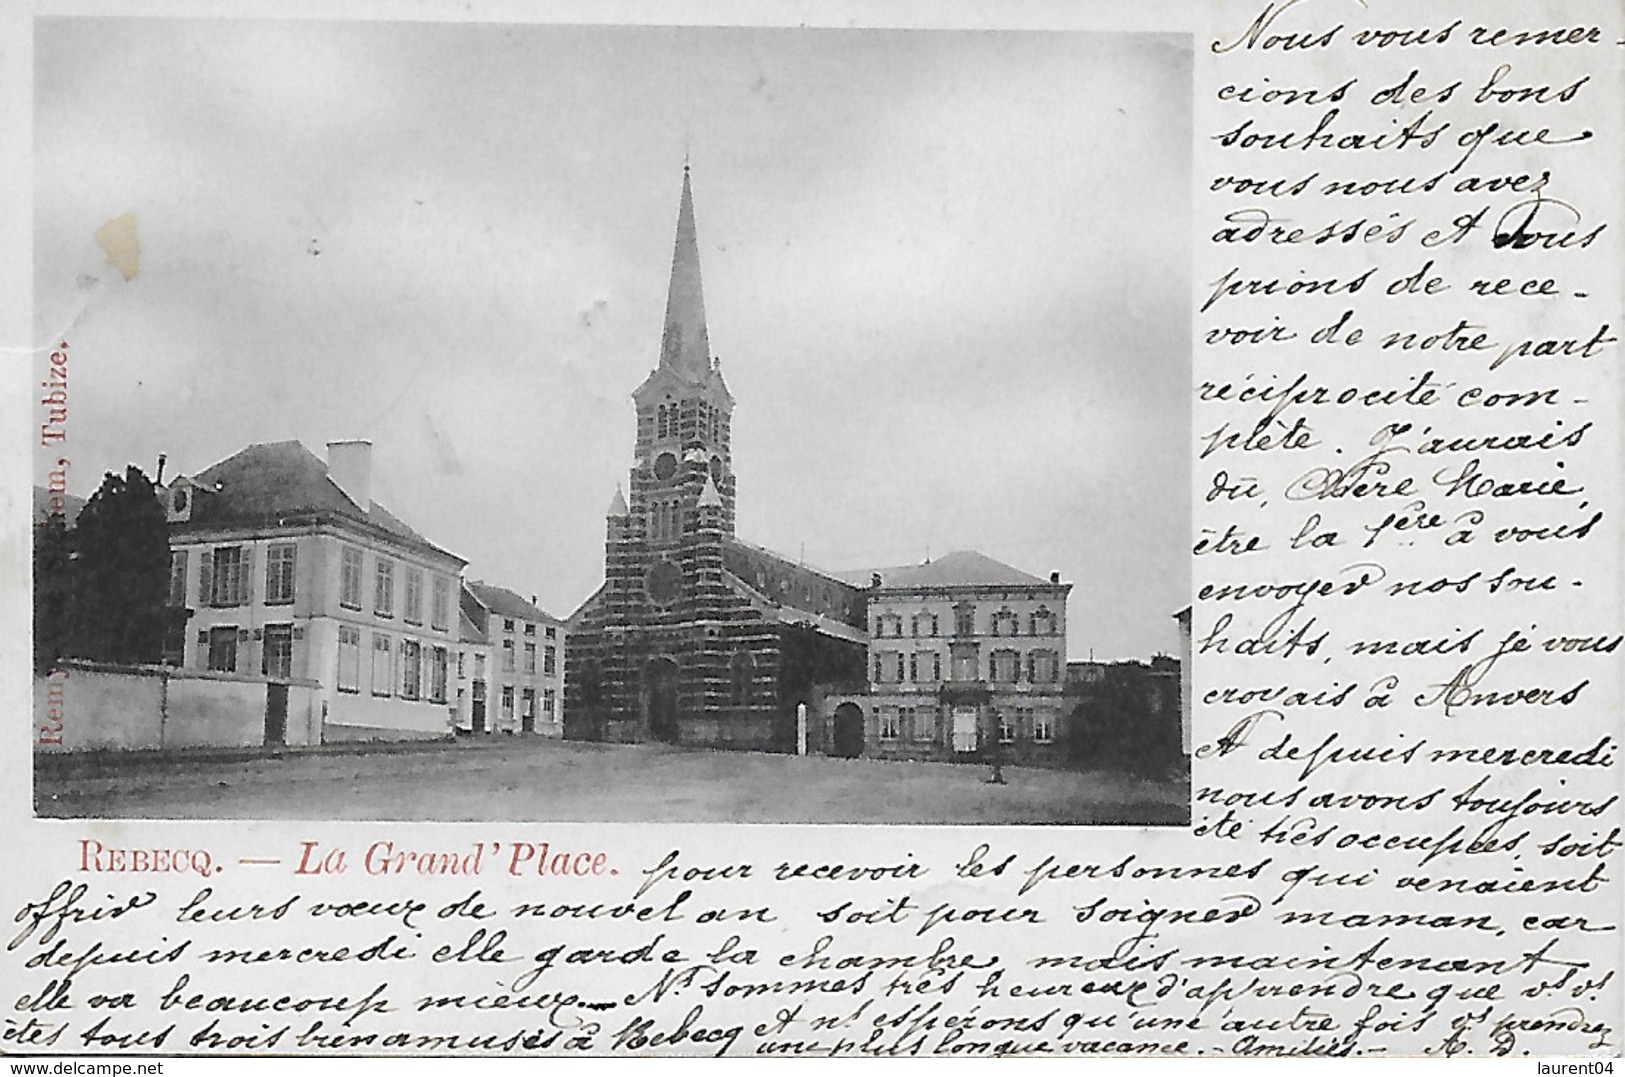 Nous vous remer-
cions des bons
souhaits que
vous nous avez
adressés et vous
prions de rece-
voir de notre part
réciprocité com-
plète. J'aurais
dû, Chère Marie,
être la 1ère à vous
envoyer nos sou-
haits, mais je vous
croyais à Anvers
et depuis mercredi
nous avons toujours
été très occupées, soit
pour recevoir les personnes qui venaient
offrir leurs vœux de nouvel an, soit pour soigner maman, car
depuis mercredi elle garde la chambre, mais maintenant
elle va beaucoup mieux. — Ns sommes très heureux d'apprendre que vs vs
êtes tous trois bien amusés à Rebecq et ns espérons qu'une autre fois vs prendrez
une plus longue vacance. - Amitiés. - A. D.
REBECQ. — La Grand' Place.
Remy, Tubize.
delcampe.net
laurent04